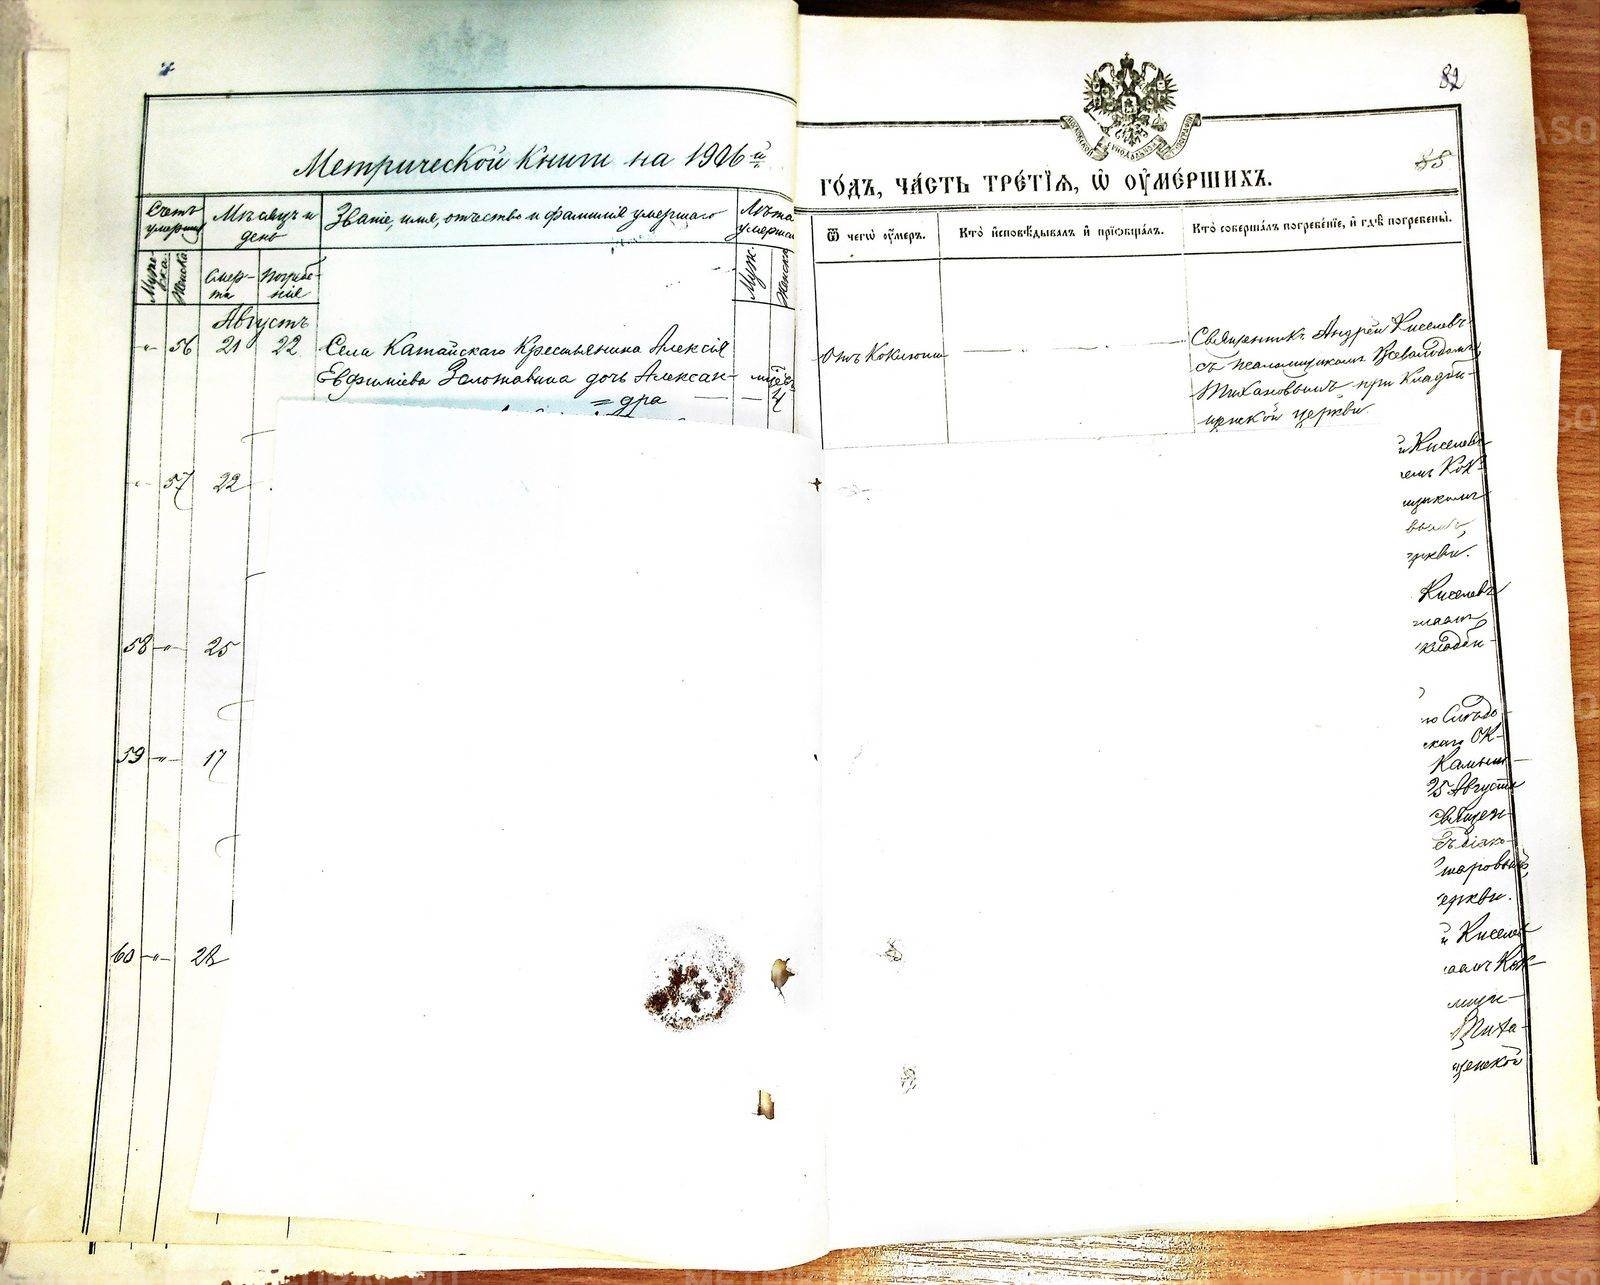 82
85
Метрической книги на 1906 й
го́дъ, ча́сть тре́тїѧ, ѡ҆ ᲂу҆ме́ршихъ.
Счетъ умерших
Мѣсяцъ и день
Званіе, имя, отчество и фамилія умершаго
Лѣта умерша
Ѿ чегѡ ᲂу҆ме́ръ.
Кто̀ и҆сповѣ́дывалъ и҆ прїѡбща́лъ.
Кто̀ соверша́лъ погребе́нїе, и҆ гдѣ̀ погребены̀.
Муж.
Женска
Смер-
та
Погребе-
ніе
Муж.
Женска
Августъ
56 21 22 Села Катайскаго Крестьянина Алексія
Евфиміева Золотавина дочь Алексан-
= дра
Отъ Коклюша
Священникъ Андрей Киселевъ
съ псаломщикомъ Всеволодомъ
Тихановымъ при Кладби-
щенской церкви
57 22
й Киселевъ
емъ Кок
щикомъ
вымъ,
еркви.
58 25
Киселевъ
59 17
каго Ок-
Камыш-
25 Августа
Священ-
еркви.
60 28
й Киселев
Тиха-
щенской